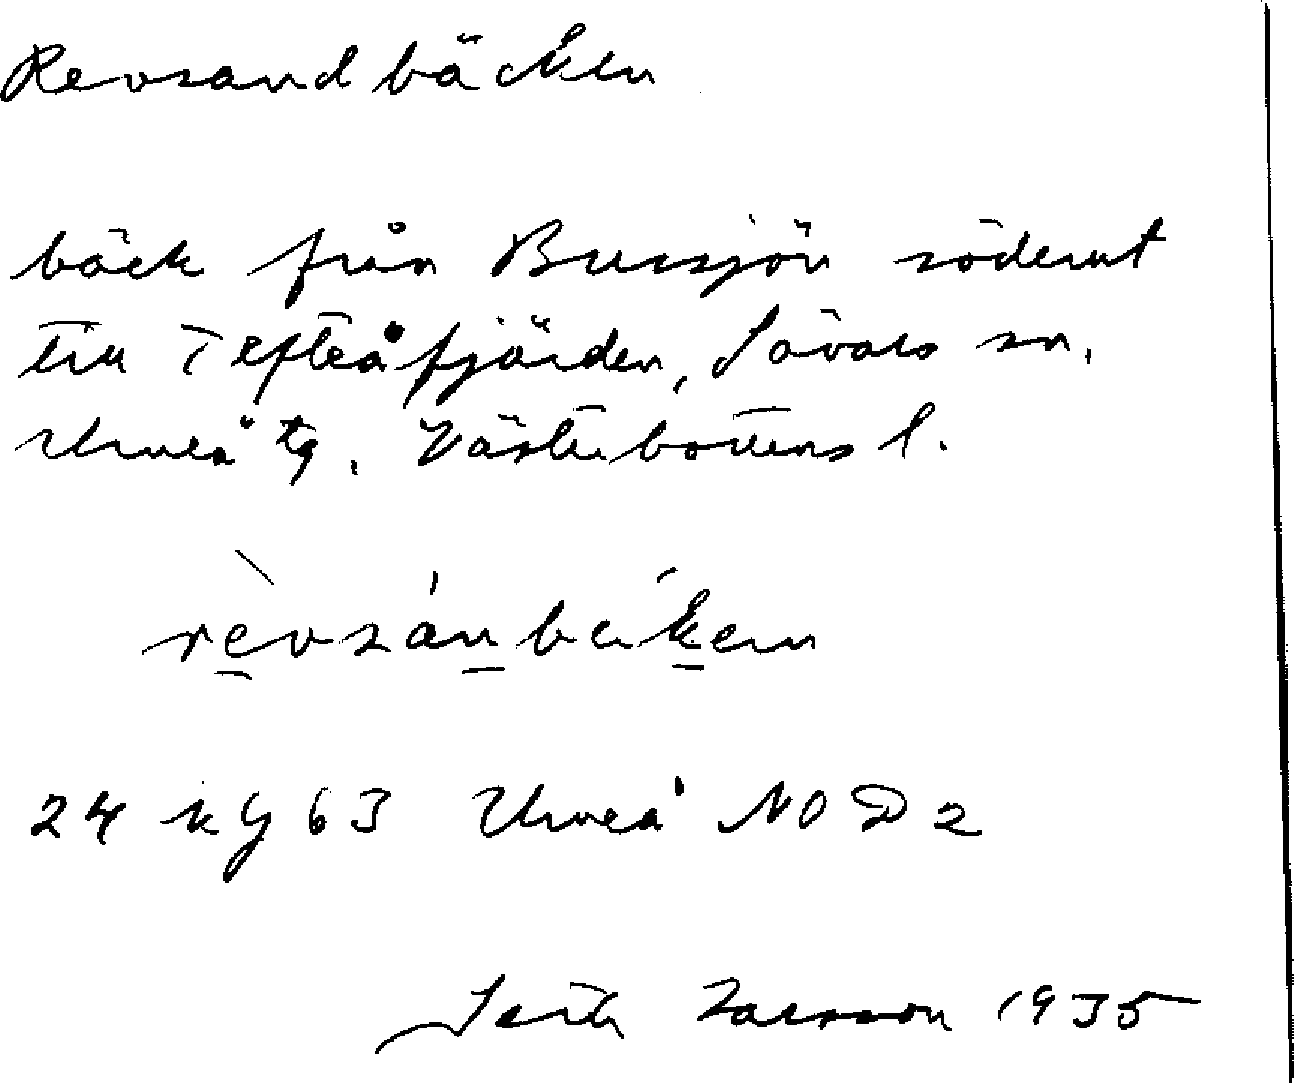 Revsandbäcken
bäck från Bussjön söderut
till Tefteåfjärden, Sävars sn,
Umeå tg, Västerbottens l.
24 k y 63 Umeå NO D 2
Larsson 1935